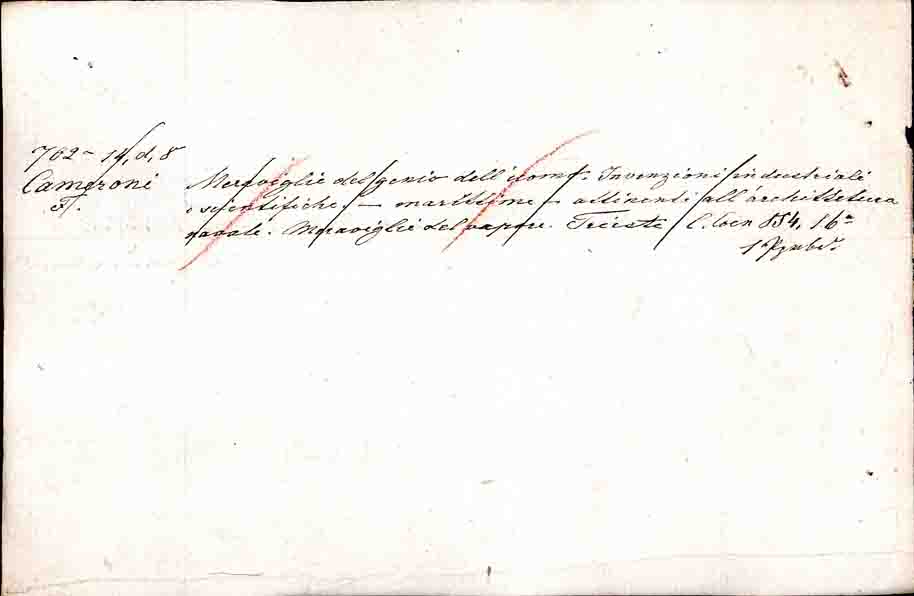 762- 14, d, 8
Cameroni
Meraviglie del genio dell'uomo. Invenzioni industriali
e scientifiche, — marittime — attinenti all'architettura
navale. Meraviglie del vapore. Trieste C. Coen 854, 16°
1